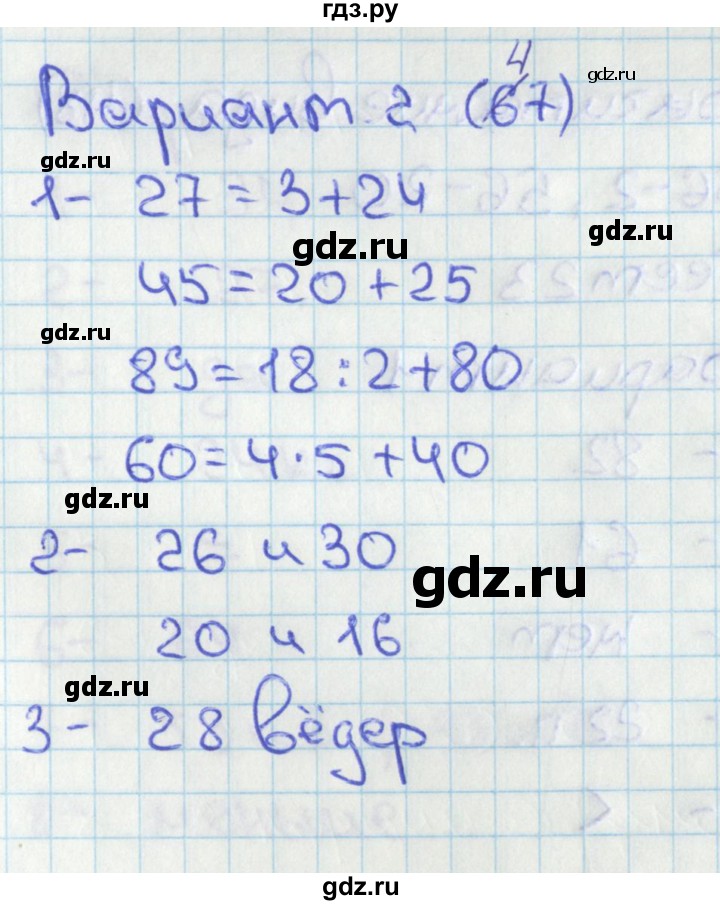 гдз.ру
Вариант 2 (47)
gdz.ru
gdz.ru
1- 27 = 3 + 24
gdz.ru
gdz.ru
45 = 20 + 25
gdz.ru
89 = 18 : 2 + 80
60 = 4 · 5 + 40
gdz.ru
2- 26 и 30
gdz.ru
20 и 16
gdz.ru
3- 28 вёдер
gdz.ru